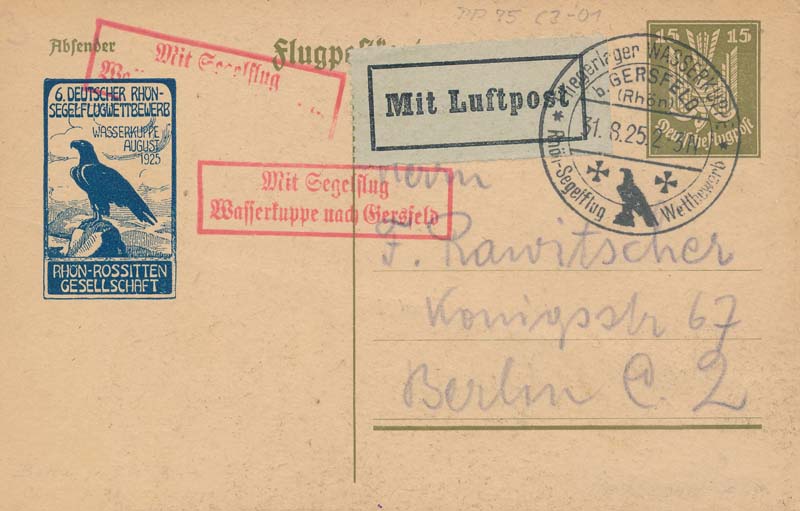 PP 75 C3-01
Absender
Flugpostkarte
Mit Segelflug
6. DEUTSCHER RHÖN-
SEGELFLUGWETTBEWERB
WASSERKUPPE
AUGUST
1925
RHÖN-ROSSITTEN
GESELLSCHAFT
Mit Luftpost
Mit Segelflug
Wasserkuppe nach Gersfeld
Fliegerlager WASSERKUPPE
b. GERSFELD
(Rhön)
31.8.25.
Rhön-Segelflug Wettbewerb
15 15
Deutsche Flugpost
Herrn
F. Rawitscher
Königsstr 67
Berlin C. 2